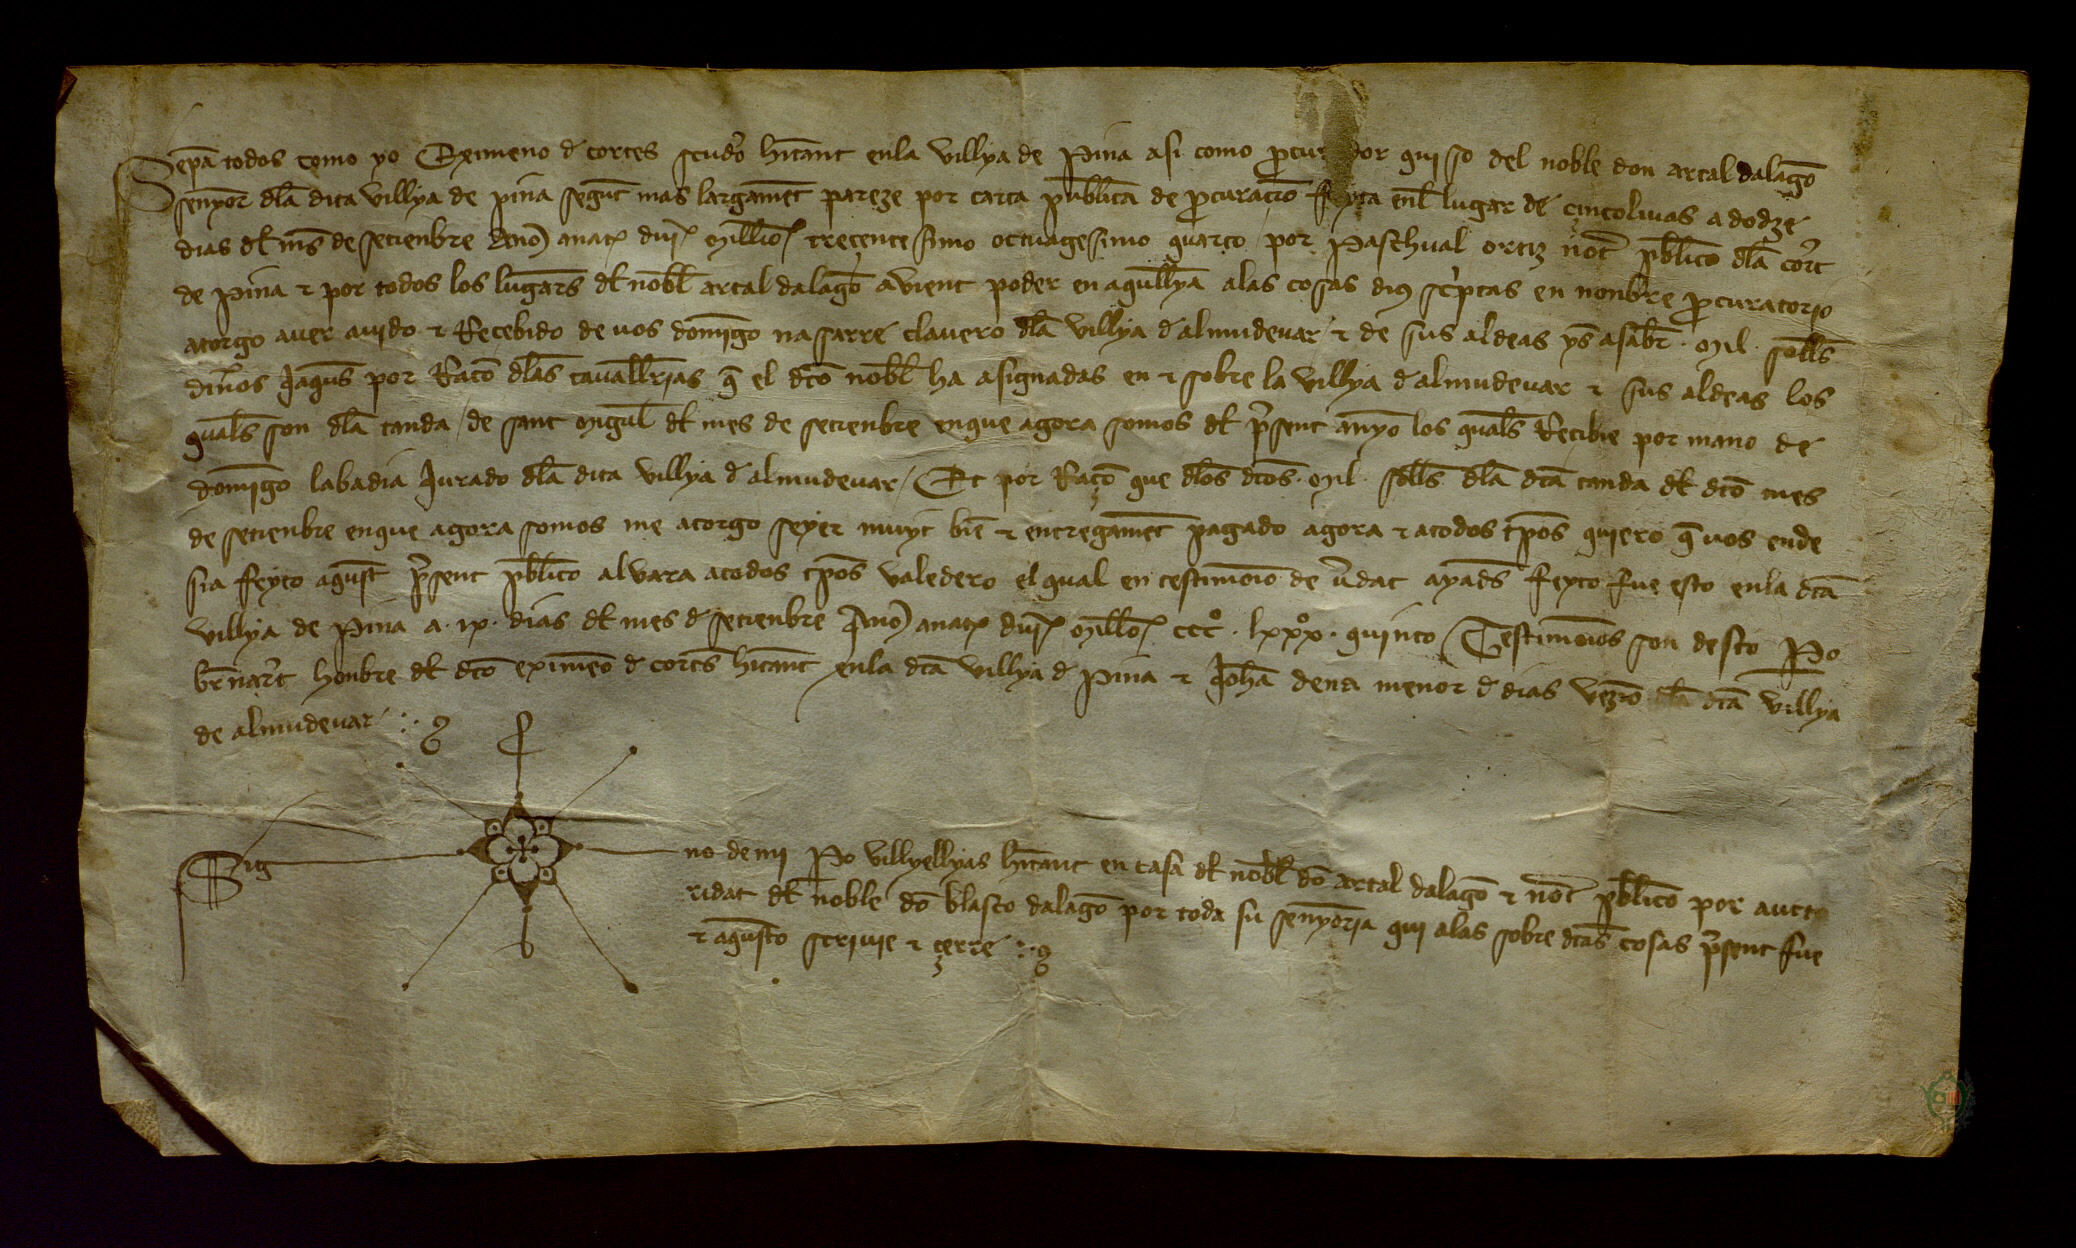 Sepã todos como yo Exĩmeno d cortes scudo hitant enla villya de Pina asi como procur dor qui so del noble don artal dalagõ
senyor dla dita villya de pina segut mas largamet pareze por carta publica de procuracio feyta enl lugar de cincolivas a dodze
dias dl ms de setienbre Ano anat dni Millio trecentesimo octuagesimo quarto por Paschual ortiz not publico dla cort
de Pina τ por todos los lugars dl nobl artal dalago avient poder en aqullya alas cosas dius scriptas en nonbre procuratorio
atorgo aver avido τ Recebido de vos domigo nasarre clavero dla villya d almudevar τ de sus aldeas ys asabr · Mil · solls
diños Jaqus por Raço dlas cavallrias q el dto nobl ha asignadas en τ sobre la villya d almudevar τ sus aldeas los
quals son dla tanda / de sant Migul dl mes de setienbre enque agora somos dl prsent anyo los quals Recibie por mano de
domigo labadia Jurado dla dita villya d almudevar / Et por Raço que dlos dtos · Mil · solls dla dta tanda dl dto mes
de setienbre enque agora somos me atorgo seyer muyt bie τ entregamet pagado agora τ atodos tpos quiero q vos ende
sia feyto aqust prsent publico alvara atodos tpos valedero el qual en testimonio de vdat ayads feyto fue esto enla dta
villya de Pina a · ix · dias dl mes d setienbre Ano anat dni Millo ccc° · lxxx° · quinto / Testimonios son desto Po
brnart honbre dl dto eximeo d corts hitant enla dta villya d Pina τ Joha dena menor d dias vezio dla dta villya
de almudevar
Sig no de mi Po villyellyas hitant en casa dl nobl do artal dalago τ not publico por aucto
ridat dl noble do blasco dalago por toda su senyoria qui alas sobre dtas cosas prsent fue
τ aqusto scrivie τ çerre